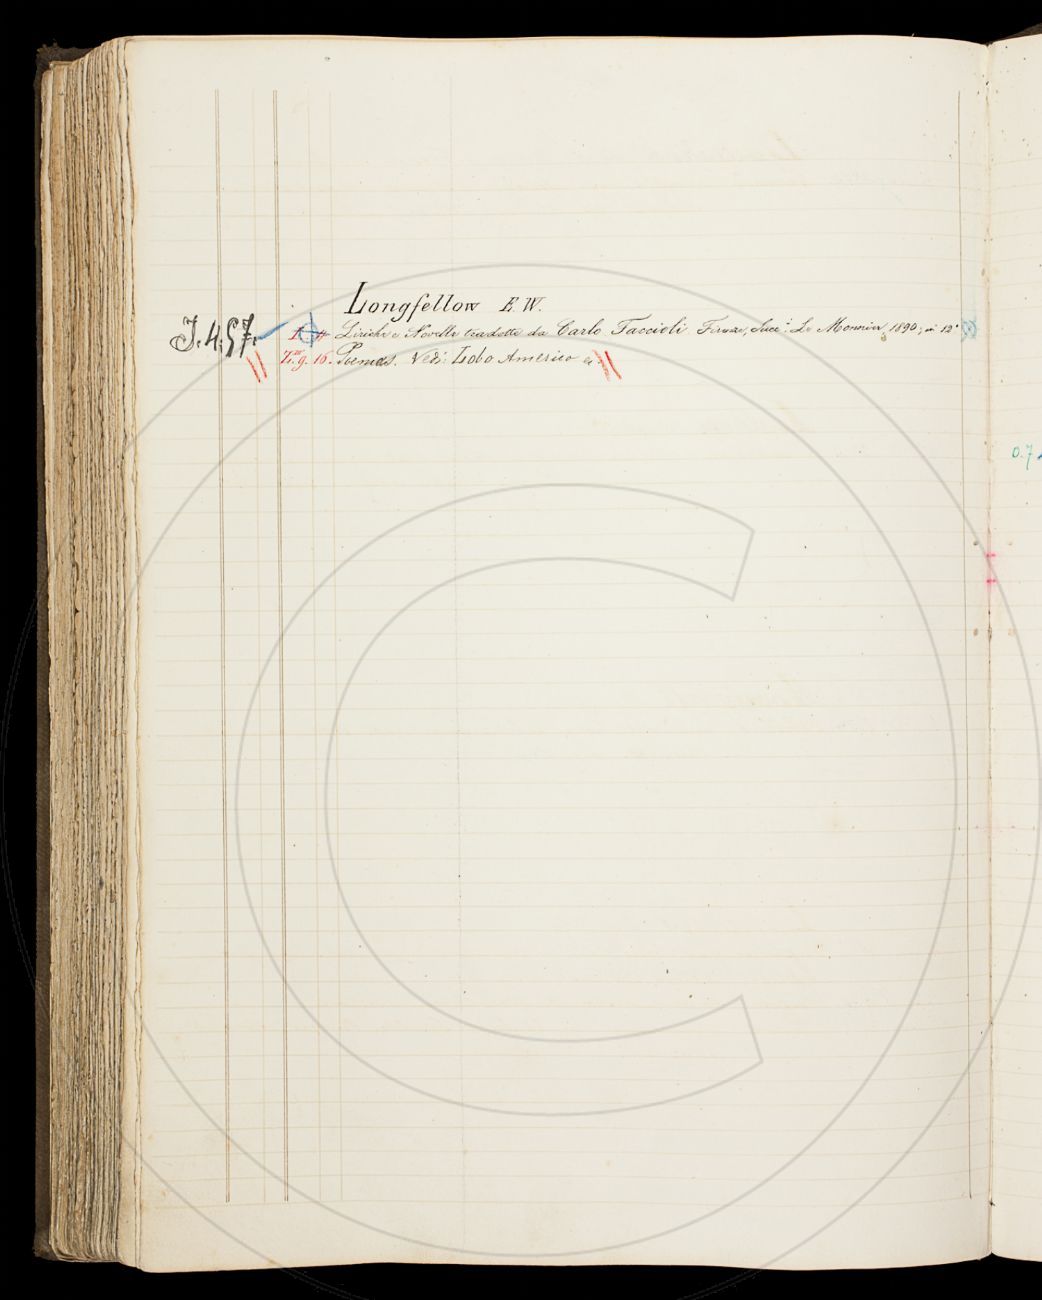 Longfellow E. W.
J. 4. 57. Liriche e Novelle tradotte da Carlo Faccioli. Firenze, Succ.i Le Monnier, 1890; in 12°
g. 16. Poemas. Vedi: Lobo Americo
0.7